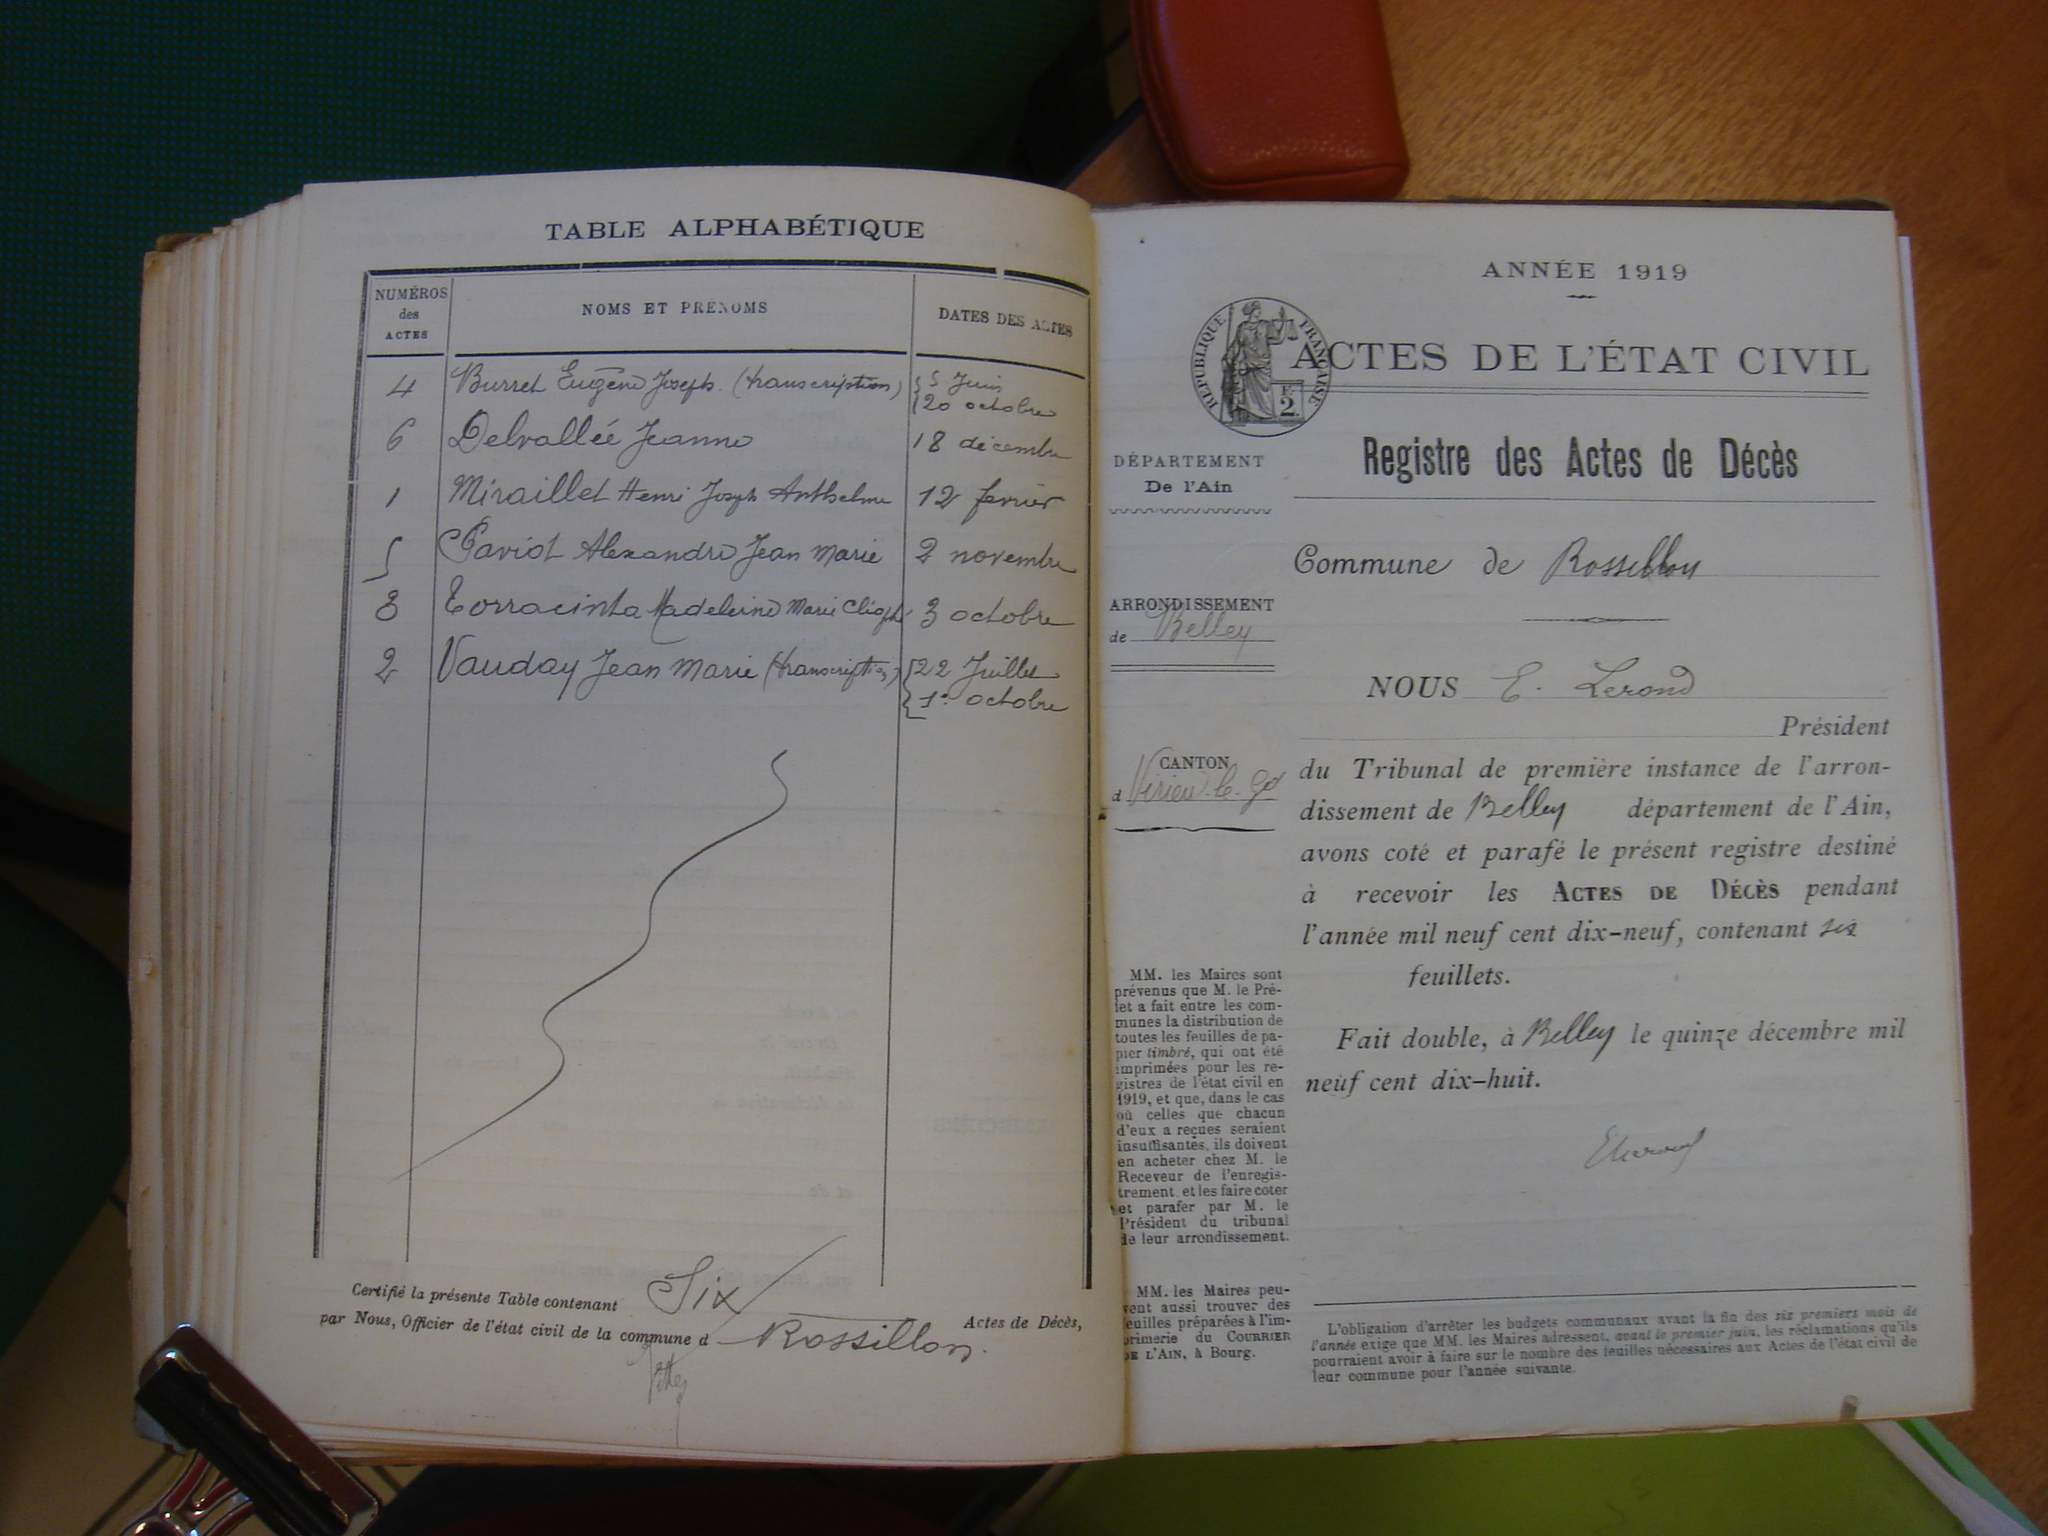 TABLE ALPHABÉTIQUE
NUMÉROS
des
ACTES
NOMS ET PRÉNOMS
DATES DES ACTES
4 Burret Eugène Joseph. (transcription) 5 Juin
20 octobre
6 Delvallée Jeanne 18 décembre
1 Miraillet Henri Joseph Anthelme 12 fevrier
5 Paviot Alexandre Jean Marie 2 novembre
3 Torracinta Madeleine Marie 3 octobre
2 Vauday Jean Marie (transcription) 22 Juillet
1er octobre
Certifié la présente Table contenant Six Actes de Décès,
par Nous, Officier de l'état civil de la commune d Rossillon.
ANNÉE 1919
RÉPUBLIQUE FRANÇAISE
2
ACTES DE L'ÉTAT CIVIL
Registre des Actes de Décès
DÉPARTEMENT
De l'Ain
Commune de Rossillon
ARRONDISSEMENT
de Belley
NOUS E. Lerond
Président
CANTON
d Virieu-le-Gd
du Tribunal de première instance de l'arron-
dissement de Belley département de l'Ain,
avons coté et parafé le présent registre destiné
à recevoir les ACTES DE DÉCÈS pendant
l'année mil neuf cent dix-neuf, contenant six
feuillets.
Fait double, à Belley le quinze décembre mil
neuf cent dix-huit.
MM. les Maires sont
prévenus que M. le Pré-
fet a fait entre les com-
munes la distribution de
toutes les feuilles de pa-
pier timbré, qui ont été
imprimées pour les re-
gistres de l'état civil en
1919, et que, dans le cas
où celles que chacun
d'eux a reçues seraient
insuffisantes, ils doivent
en acheter chez M. le
Receveur de l'enregis-
trement et les faire coter
et parafer par M. le
Président du tribunal
de leur arrondissement.
MM. les Maires peu-
vent aussi trouver des
feuilles préparées à l'im-
primerie du COURRIER
DE L'AIN, à Bourg.
L'obligation d'arrêter les budgets communaux avant la fin des six premiers mois de
l'année exige que MM. les Maires adressent, avant le premier juin, les réclamations qu'ils
pourraient avoir à faire sur le nombre des feuilles nécessaires aux Actes de l'état civil de
leur commune pour l'année suivante.